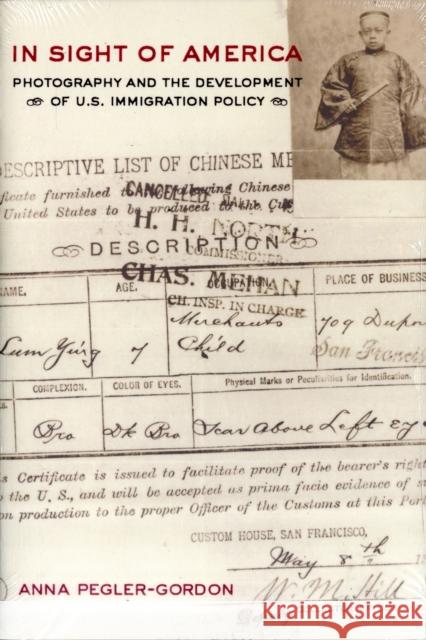 IN SIGHT OF AMERICA
PHOTOGRAPHY AND THE DEVELOPMENT
OF U.S. IMMIGRATION POLICY
DESCRIPTIVE LIST OF CHINESE ME
ficate furnished to the following Chinese
United States to be produced to the Cu
CANCELLED
H. H. NORTH
COMMISSIONER
DESCRIPTION
CHAS. MEHAN
CH. INSP. IN CHARGE
NAME. AGE. OCCUPATION. PLACE OF BUSINESS
Lum Ying 7 Merchants Child 709 Dupon
San Francis
COMPLEXION. COLOR OF EYES. Physical Marks or Peculiarities for Identification.
Bro Dk Bro Scar Above Left Ey
s Certificate is issued to facilitate proof of the bearer's right
the U. S., and will be accepted as prima facie evidence of
on production to the proper Officer of the Customs at this Port
CUSTOM HOUSE, SAN FRANCISCO,
May 8th
ANNA PEGLER-GORDON